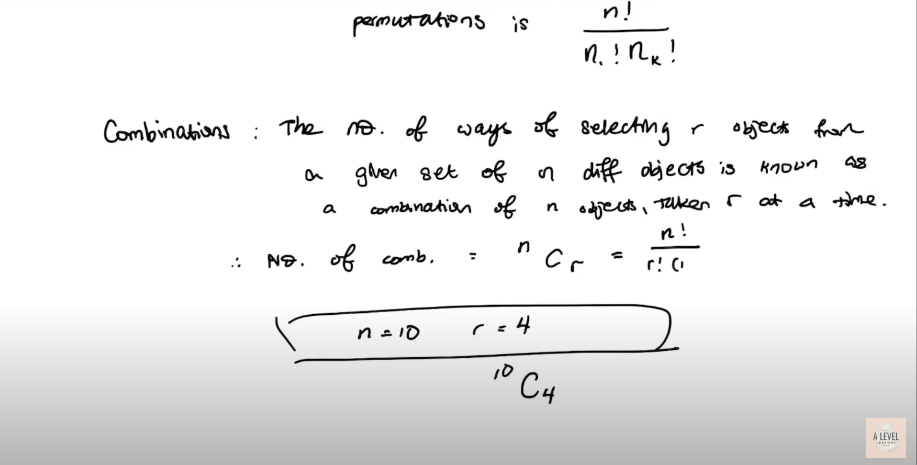 permutations is n! / n₁! nₖ!
Combinations : The no. of ways of selecting r objects from
a given set of n diff objects is known as
a combination of n objects, taken r at a time.
∴ No. of comb. = ⁿCᵣ = n! / r! (
n = 10 r = 4
¹⁰C₄
A LEVEL